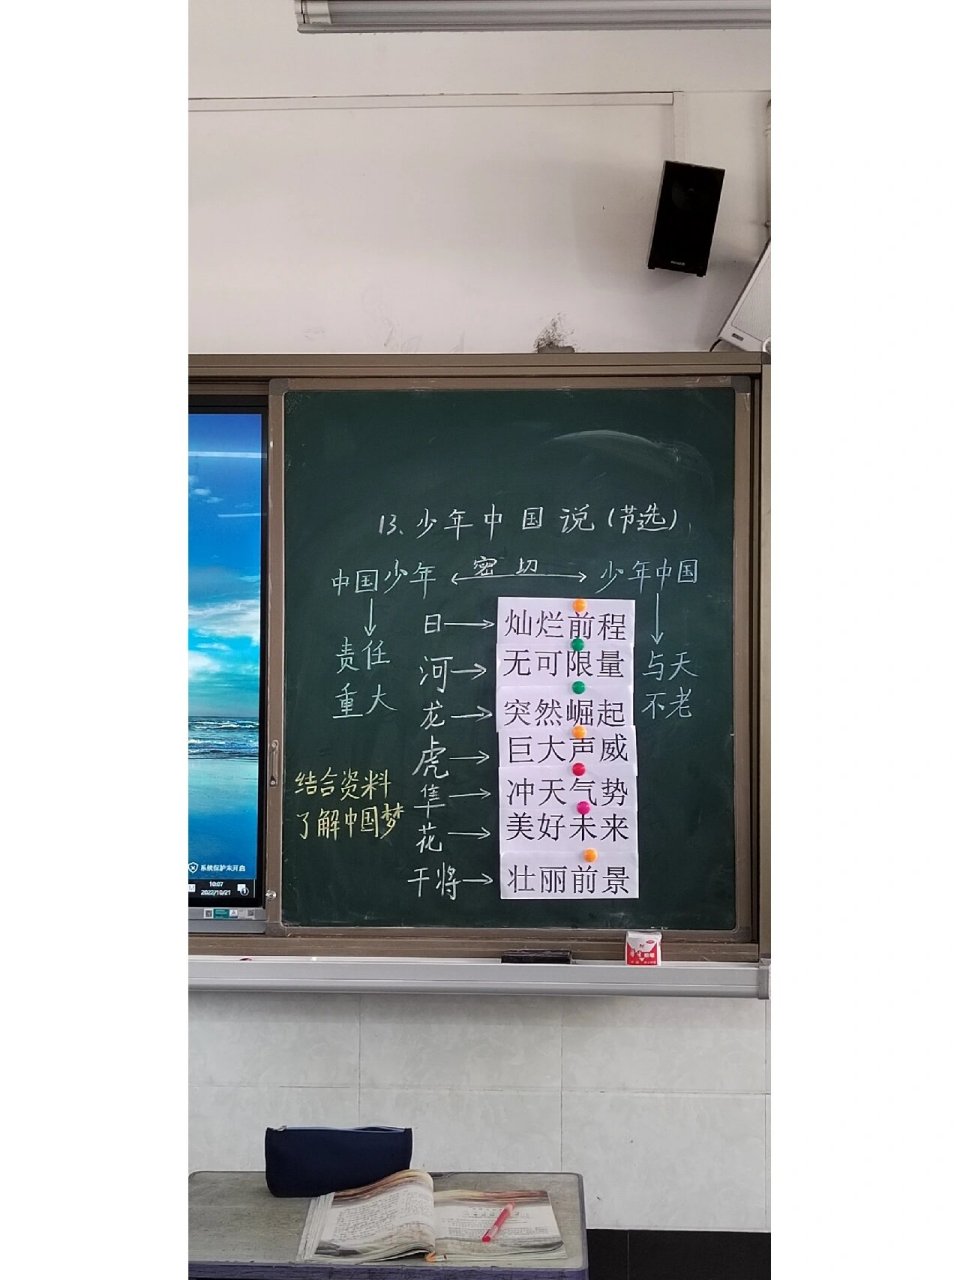 13、少年中国说(节选)
中国少年 密切 少年中国
责任
重大
与天
不老
日 灿烂前程
河 无可限量
龙 突然崛起
虎 巨大声威
隼 冲天气势
花 美好未来
干将 壮丽前景
结合资料
了解中国梦
系统保护未开启
10:07
2022/10/21